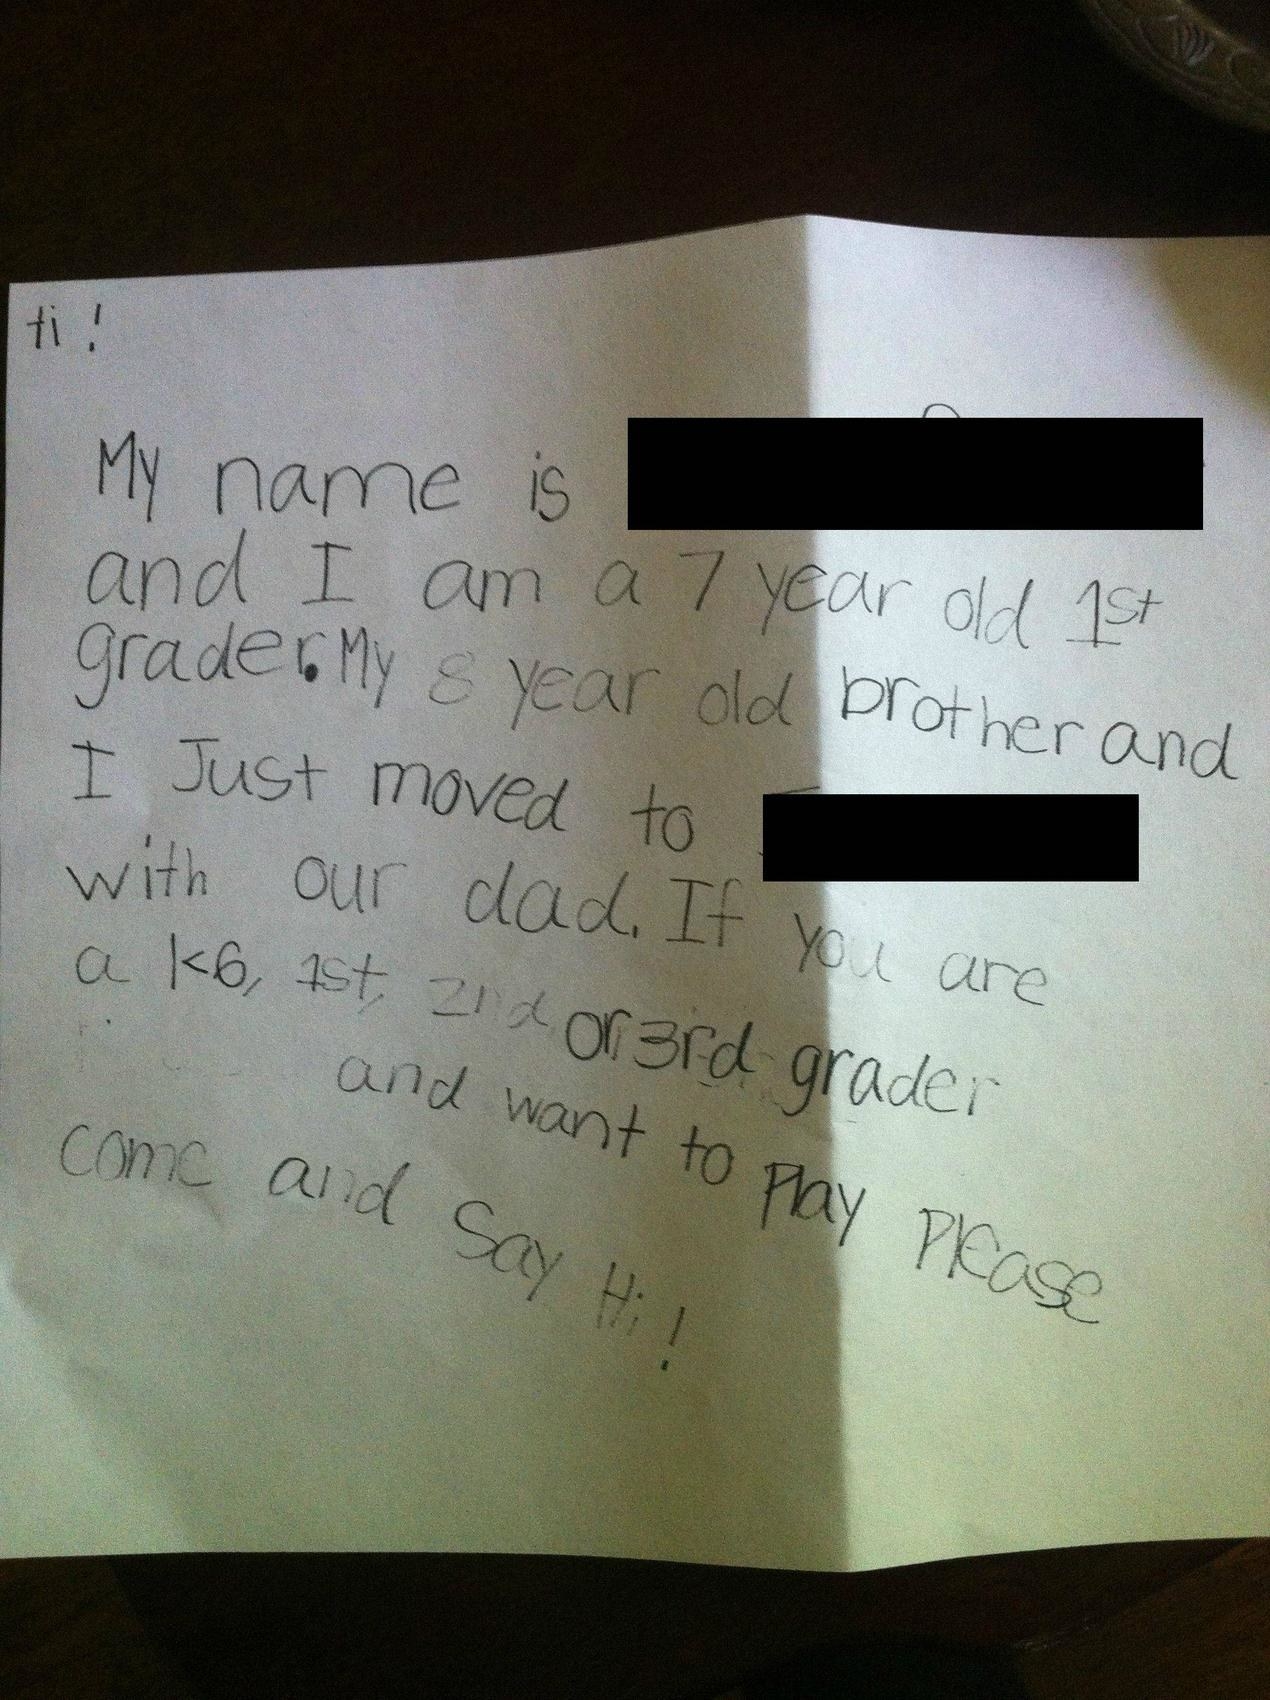 Hi !
My name is
and I am a 7 year old 1st
grader. My 8 year old brother and
I Just moved to
with our dad. If you are
a k6, 1st, 2nd or 3rd grader
and want to Play Please
come and Say Hi !